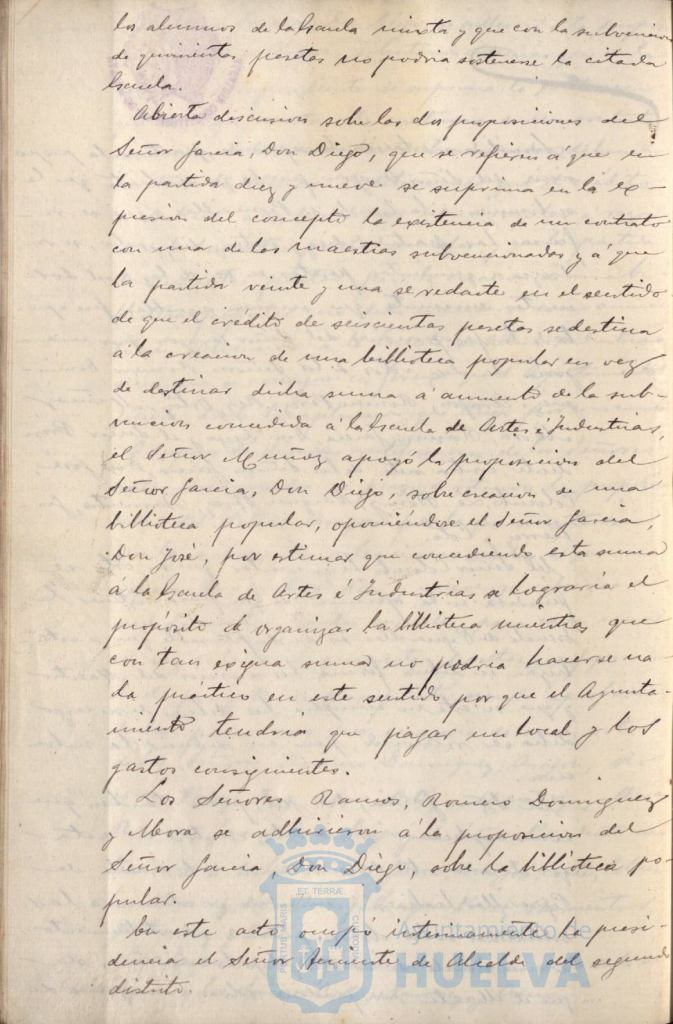 los alumnos de la Escuela mixta y que con la subvención
de quinientas pesetas no podria sostenerse la citada
Escuela.
Abierta discusion sobre las dos proposiciones del
Señor Garcia, Don Diego, que se refieren á que en
la partida diez y nueve se suprima en la ex-
presion del concepto la existencia de un contrato
con una de las maestras subvencionadas y á que
la partida veinte y una se redacte en el sentido
de que el crédito de seiscientas pesetas se destina
á la creacion de una biblioteca popular en vez
de destinar dicha suma á aumento de la sub-
vencion concedida á la Escuela de Artes é Industrias,
el Señor Muñoz apoyó la proposicion del
Señor Garcia, Don Diego, sobre creacion de una
biblioteca popular, oponiéndose el Señor Garcia,
Don José, por estimar que concediendo esta suma
á la Escuela de Artes é Industrias se lograria el
propósito de organizar la biblioteca mientras que
con tan exigua suma no podria hacerse na-
da práctico en este sentido por que el Ayunta-
miento tendria que pagar un local y los
gastos consiguientes.
Los Señores Ramos, Romero Dominguez
y Mora se adhirieron á la proposicion del
Señor Garcia, Don Diego, sobre la biblioteca po-
pular.
En este acto ocupó interinamente la presi-
dencia el Señor Teniente de Alcalde del segundo
distrito.
PORTUS MARIS ET TERRÆ CUSTODIA
Ayuntamiento de
HUELVA